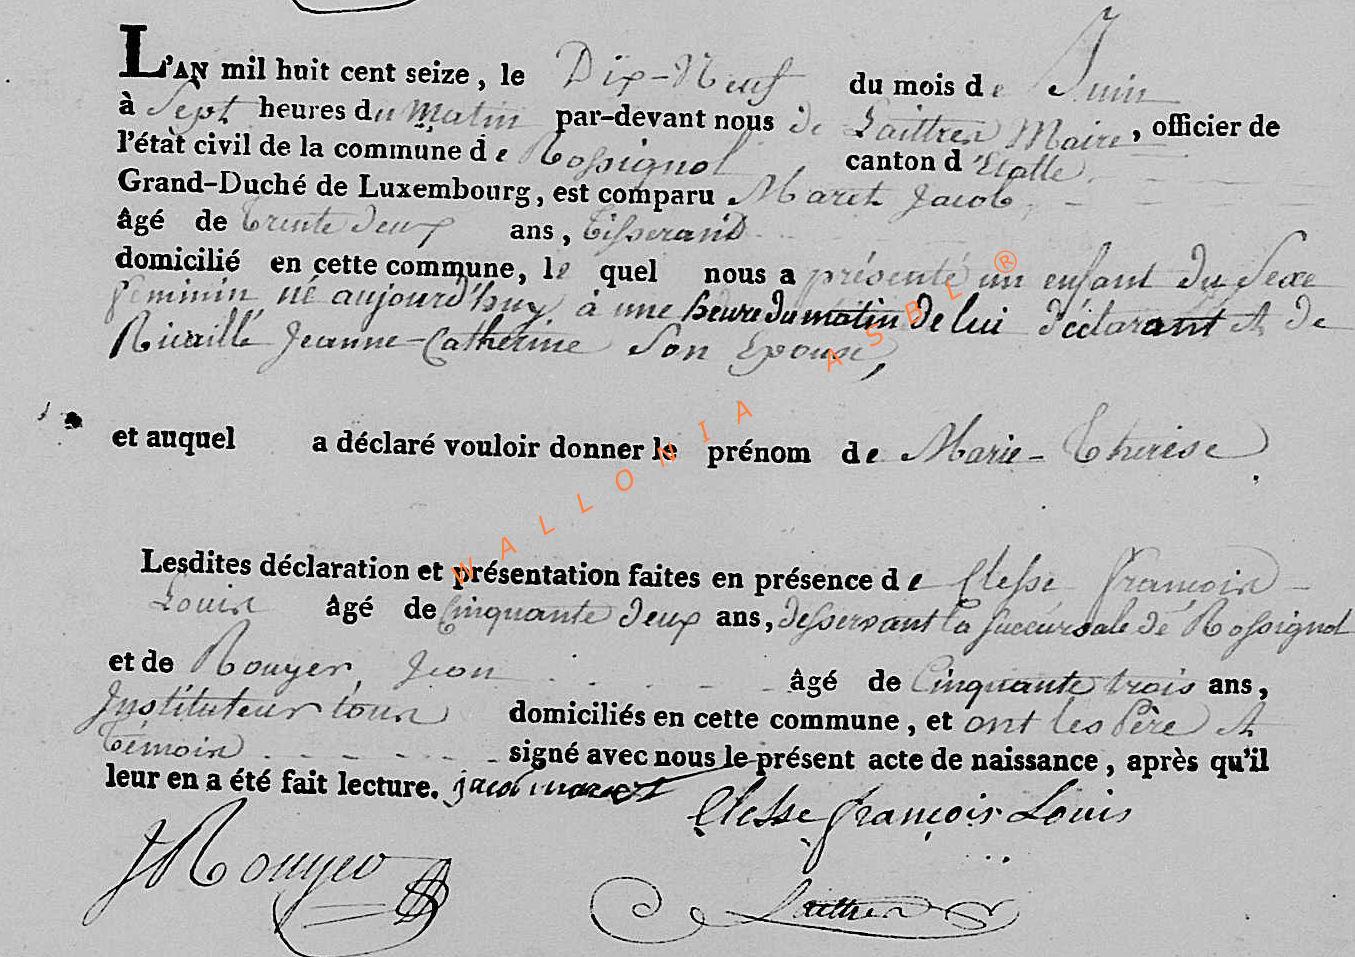 L'AN mil huit cent seize, le Dix-Neuf du mois de Juin
à Sept heures du Matin par-devant nous de Laittres Maire, officier de
l'état civil de la commune de Rossignol canton d'Etalle
Grand-Duché de Luxembourg, est comparu Maret Jacob
âgé de trente deux ans, tisserand
domicilié en cette commune, le quel nous a présenté un enfant du Sexe
feminin né aujourd'huy à une heure du matin de lui déclarant et de
Jeanne-Catherine Son Epouse,
et auquel a déclaré vouloir donner le prénom de Marie-Therese
Lesdites déclaration et présentation faites en présence de Clesse françois
Louis âgé de Cinquante deux ans, desservant la succursale de Rossignol
et de Rouyer, Jean âgé de Cinquante trois ans,
Instituteur tous domiciliés en cette commune, et ont les Père et
témoins signé avec nous le présent acte de naissance, après qu'il
leur en a été fait lecture. jacob maret
Clesse françois Louis
JRouyer
Laittres
WALLONIA ASBL ®